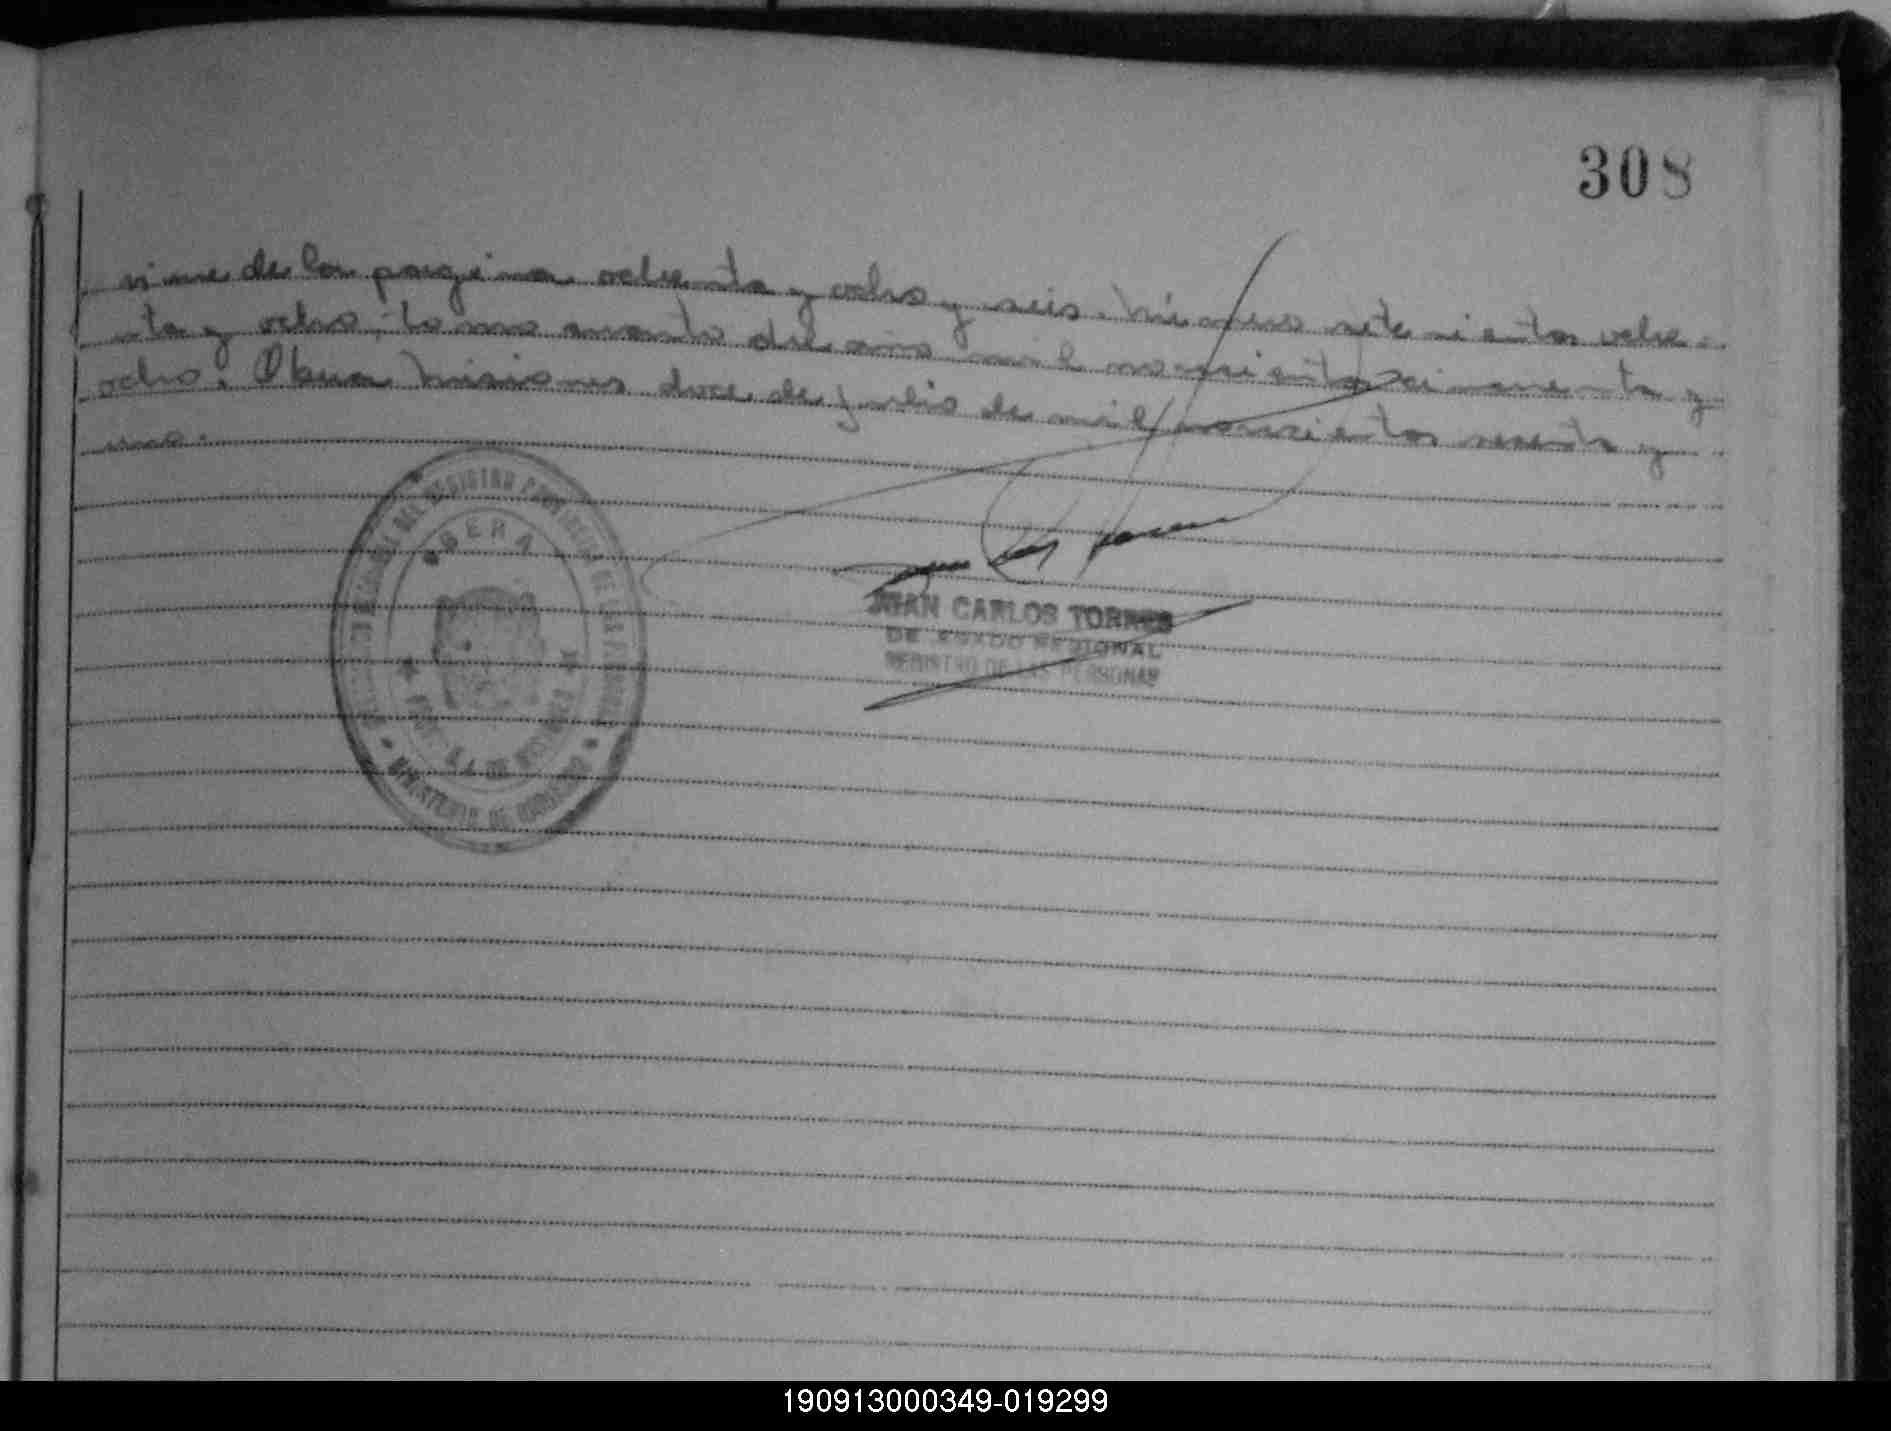 308
viene de la pagina ochenta y ocho y seis. Número setecientos oche-
nta y ocho, tomo cuarto del año mil novecientos cincuenta y
ocho. Obera Misiones doce de julio de mil novecientos sesenta y
uno.
OBERA
MINISTERIO DE GOBIERNO
JUAN CARLOS TORRES
REGIONAL
REGISTRO DE LAS PERSONAS
190913000349-019299